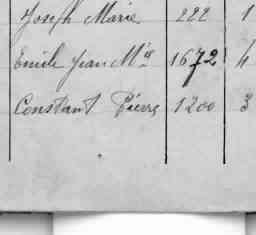 Joseph Marie 222 1
Emile Jean Mie 1672 4
Constant Pierre 1200 3